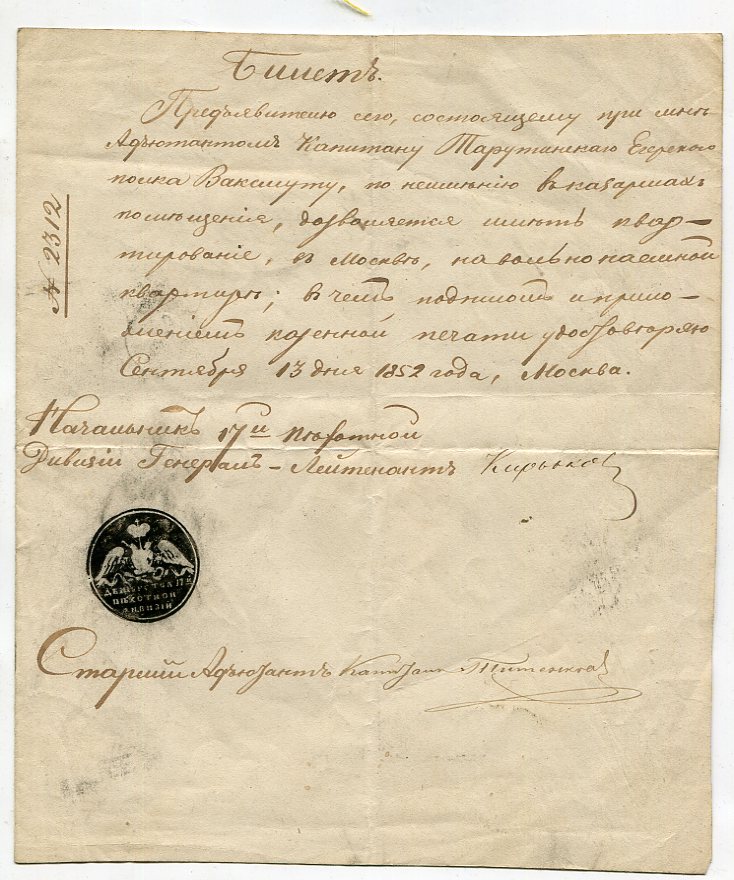 Билетъ.
Предъявителю сего, состоящему при мнѣ
Адъютантомъ Капитану Тарутинскаго Егерскаго
полка Ваксмуту, по неимѣнію въ казармахъ
помѣщенія, дозволяется имѣть квар-
тированіе, въ Москвѣ, на вольнонаемной
квартирѣ; въ чемъ подписомъ и прило-
женіемъ казенной печати удостовѣряю
Сентября 13 дня 1852 года, Москва.
№ 2312
Начальникъ 17й пѣхотной
Дивизіи Генералъ-Лейтенантъ Кирьяковъ
ДЕЖУРСТВА 17й
ПѢХОТНОЙ
ДИВИЗІИ
Старшій Адъютантъ Капитанъ